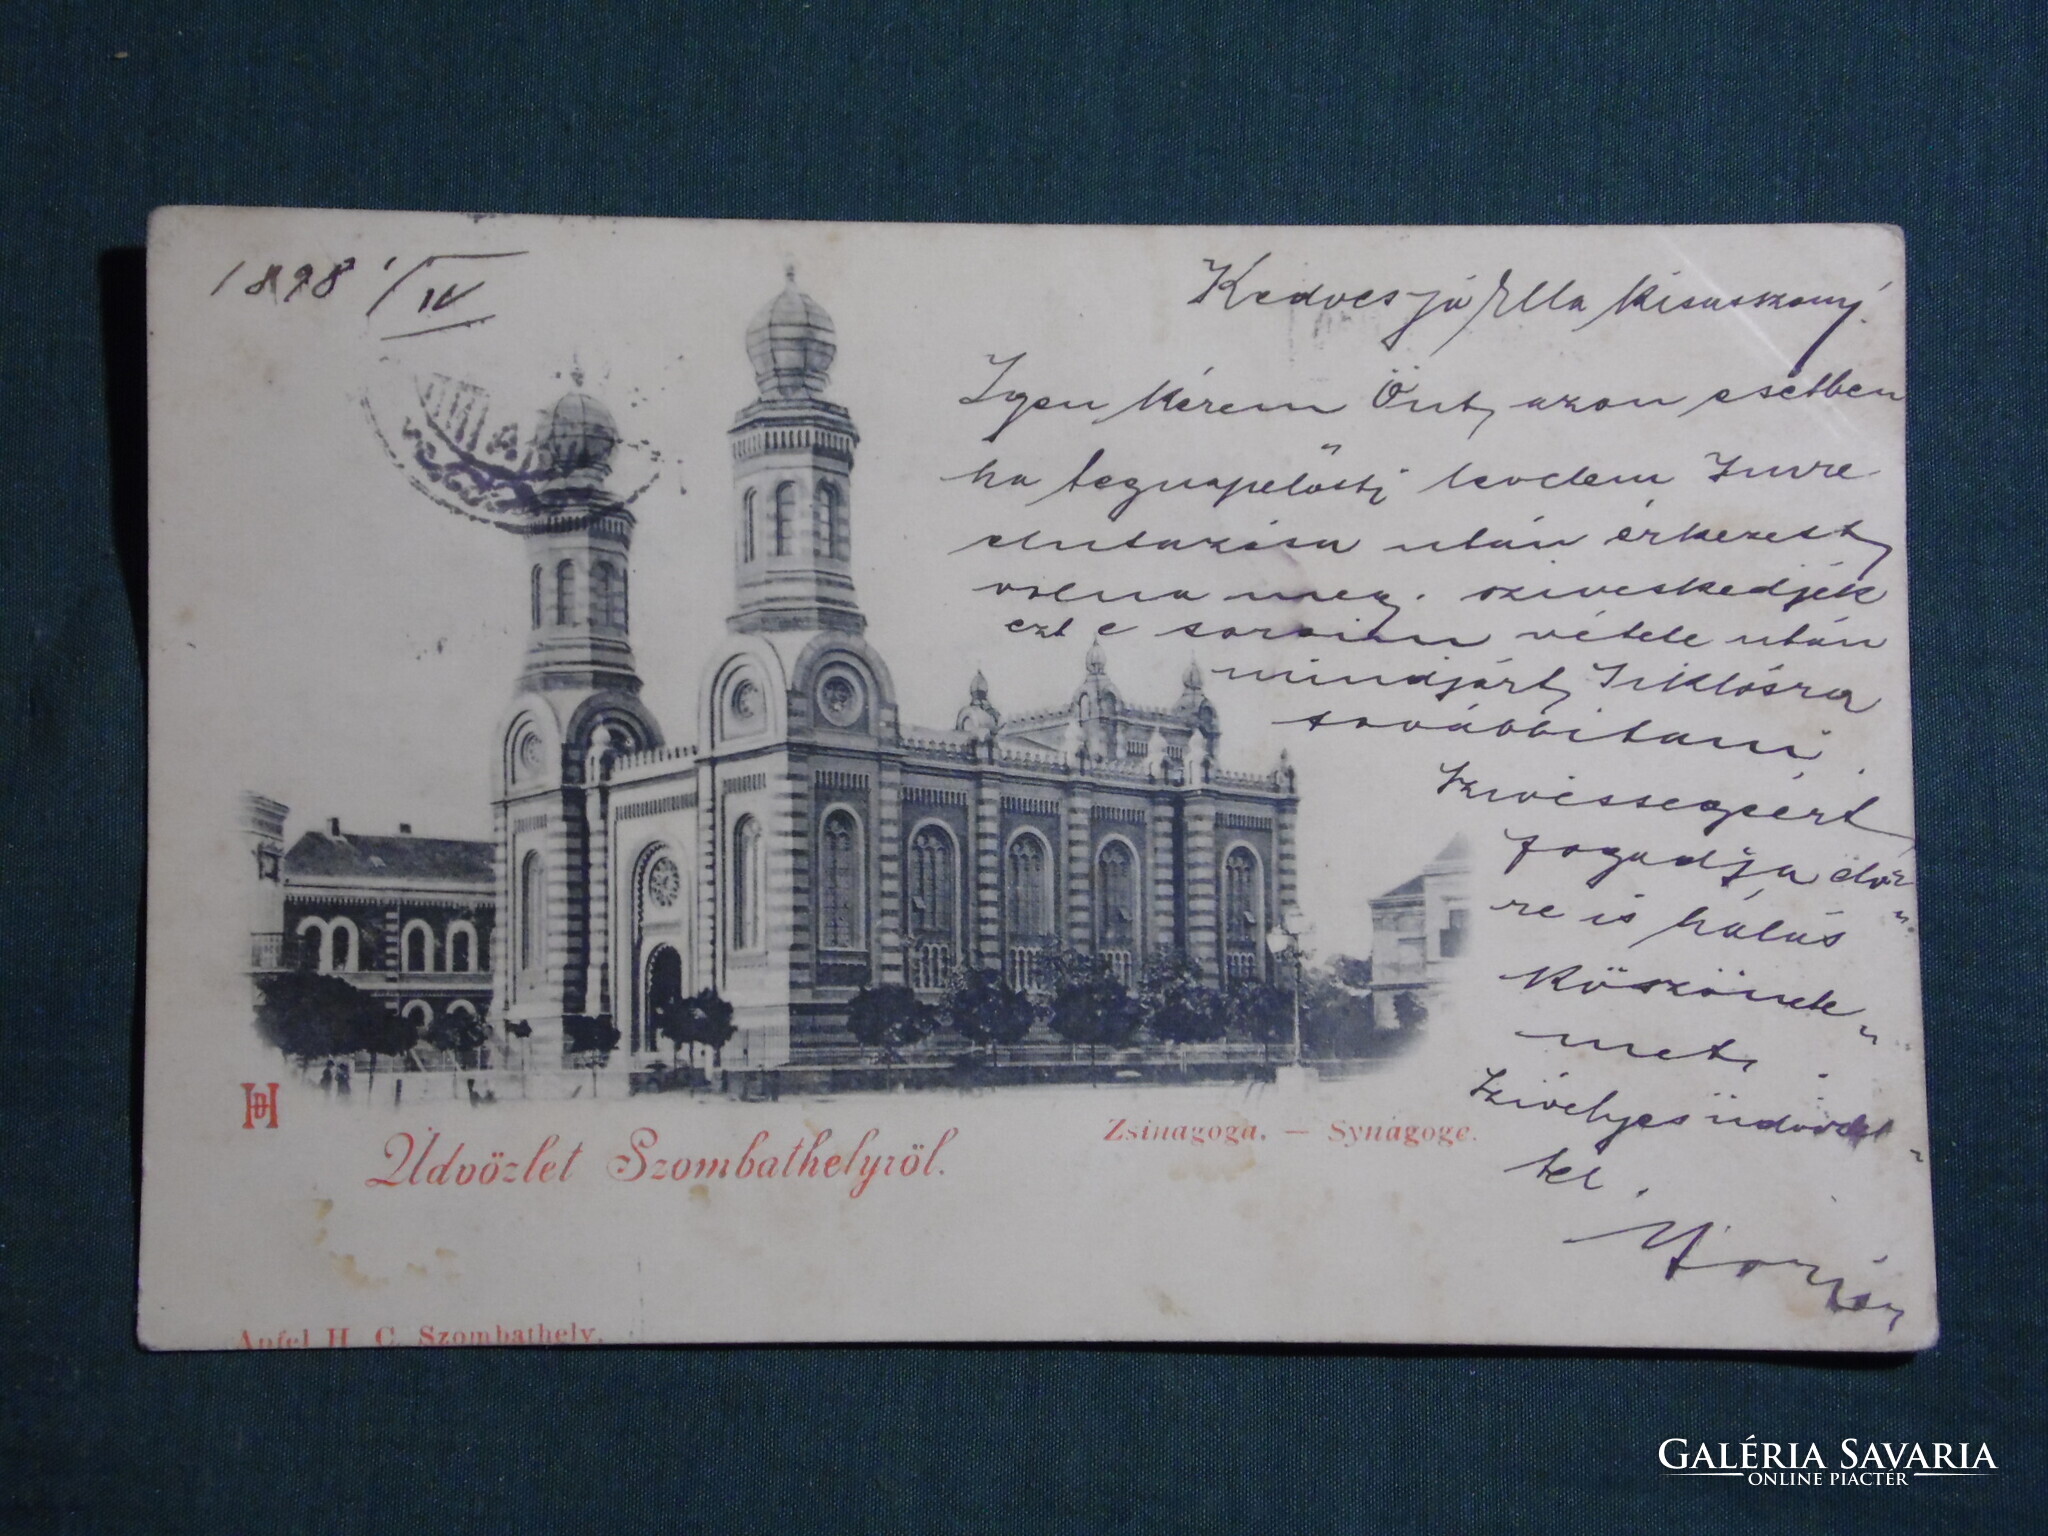 1898 1/IV
Kedves jó Ella kisasszony!
Igen kérem Önt, azon esetben
ha tegnapelőtti levelem Imre
elutazása után érkezett
volna meg. szíveskedjék
ezt e soraim vétele után
mindjárt, Siklósra
továbbítani.
Szivességeért
fogadja elő-
re is hálás
köszönete-
met.
Szívélyes üdvözlet-
tel.
DH
Zsinagoga. — Synagoge.
Üdvözlet Szombathelyről.
Apfel H. C. Szombathely.
GALÉRIA SAVARIA
ONLINE PIACTÉR